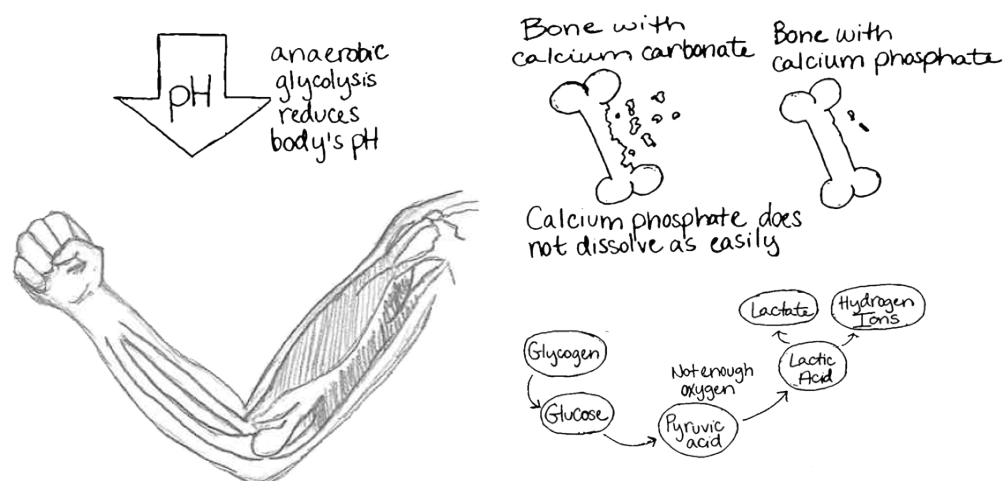 pH
anaerobic
glycolysis
reduces
body's pH
Bone with
calcium carbonate
Bone with
calcium phosphate
Calcium phosphate does
not dissolve as easily
Glycogen
Glucose
Not enough
oxygen
Pyruvic
acid
Lactic
Acid
Lactate
Hydrogen
Ions